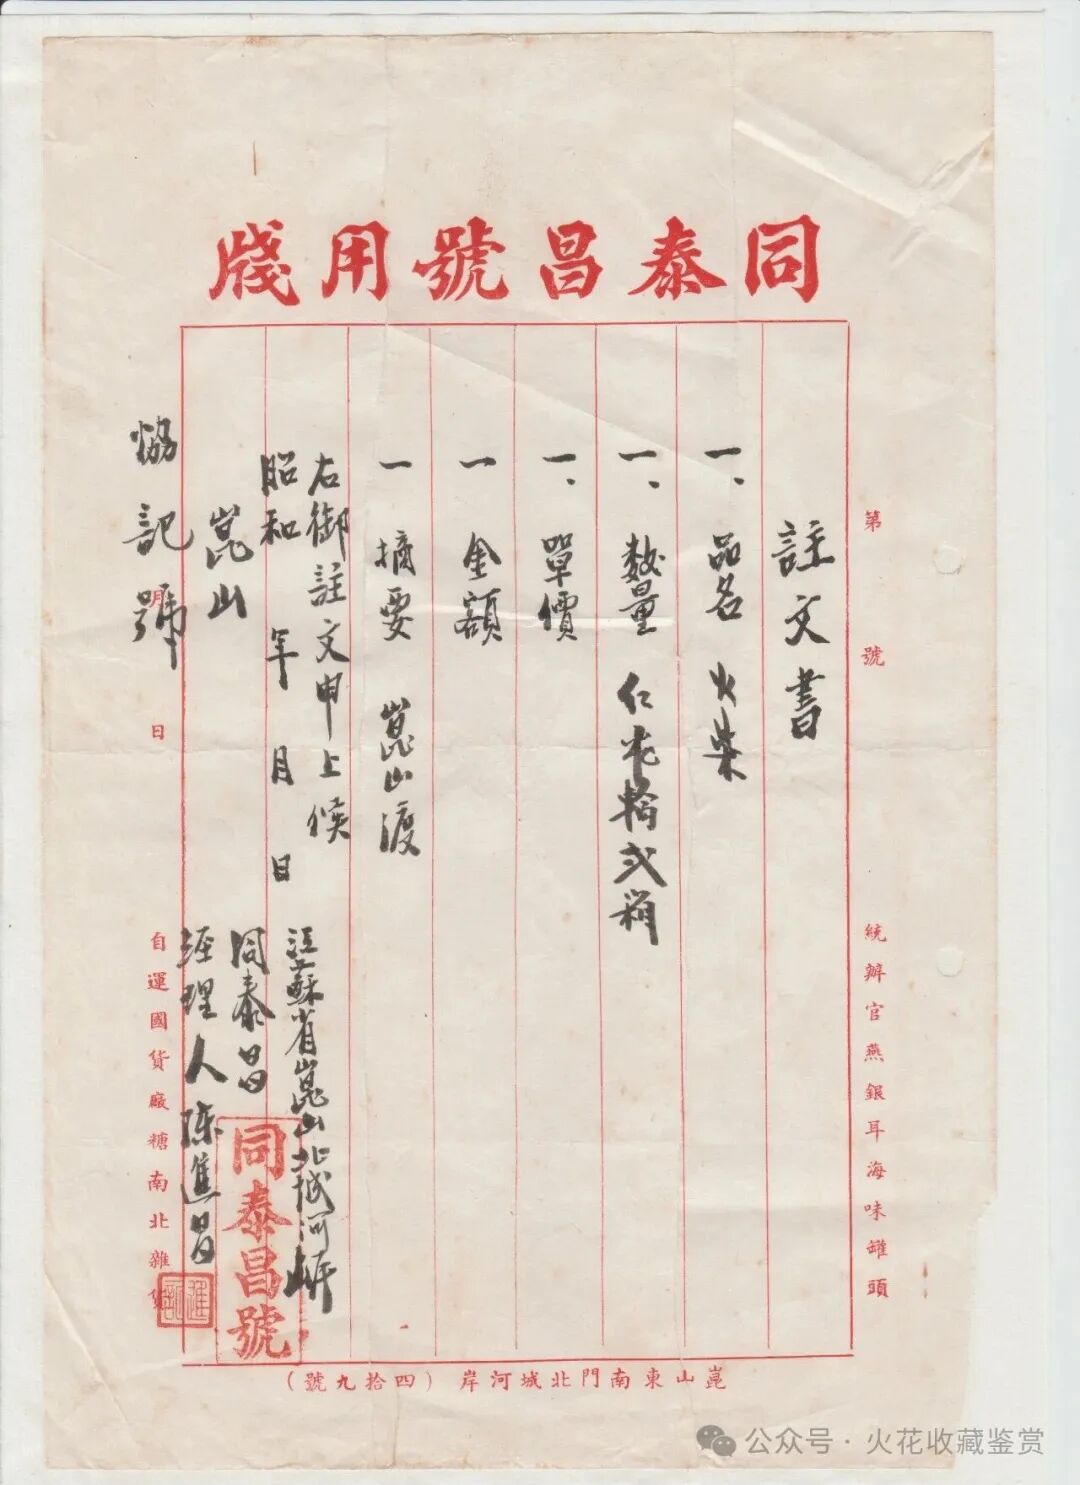 同泰昌號用牋
第 號
統辦官燕銀耳海味罐頭
註文書
一、品名 火柴
一、數量 仁老牌弍箱
一、單價
一 金額
一 摘要 崑山渡
右御註文申上候
昭和 年 月 日
江蘇省崑山北城河岸
崑山
同泰昌
同泰昌號
協記號
經理人 陳進昌
月 日
自運國貨廠糖南北雜貨
崑山東南門北城河岸（四拾九號）
公众号·火花收藏鉴赏